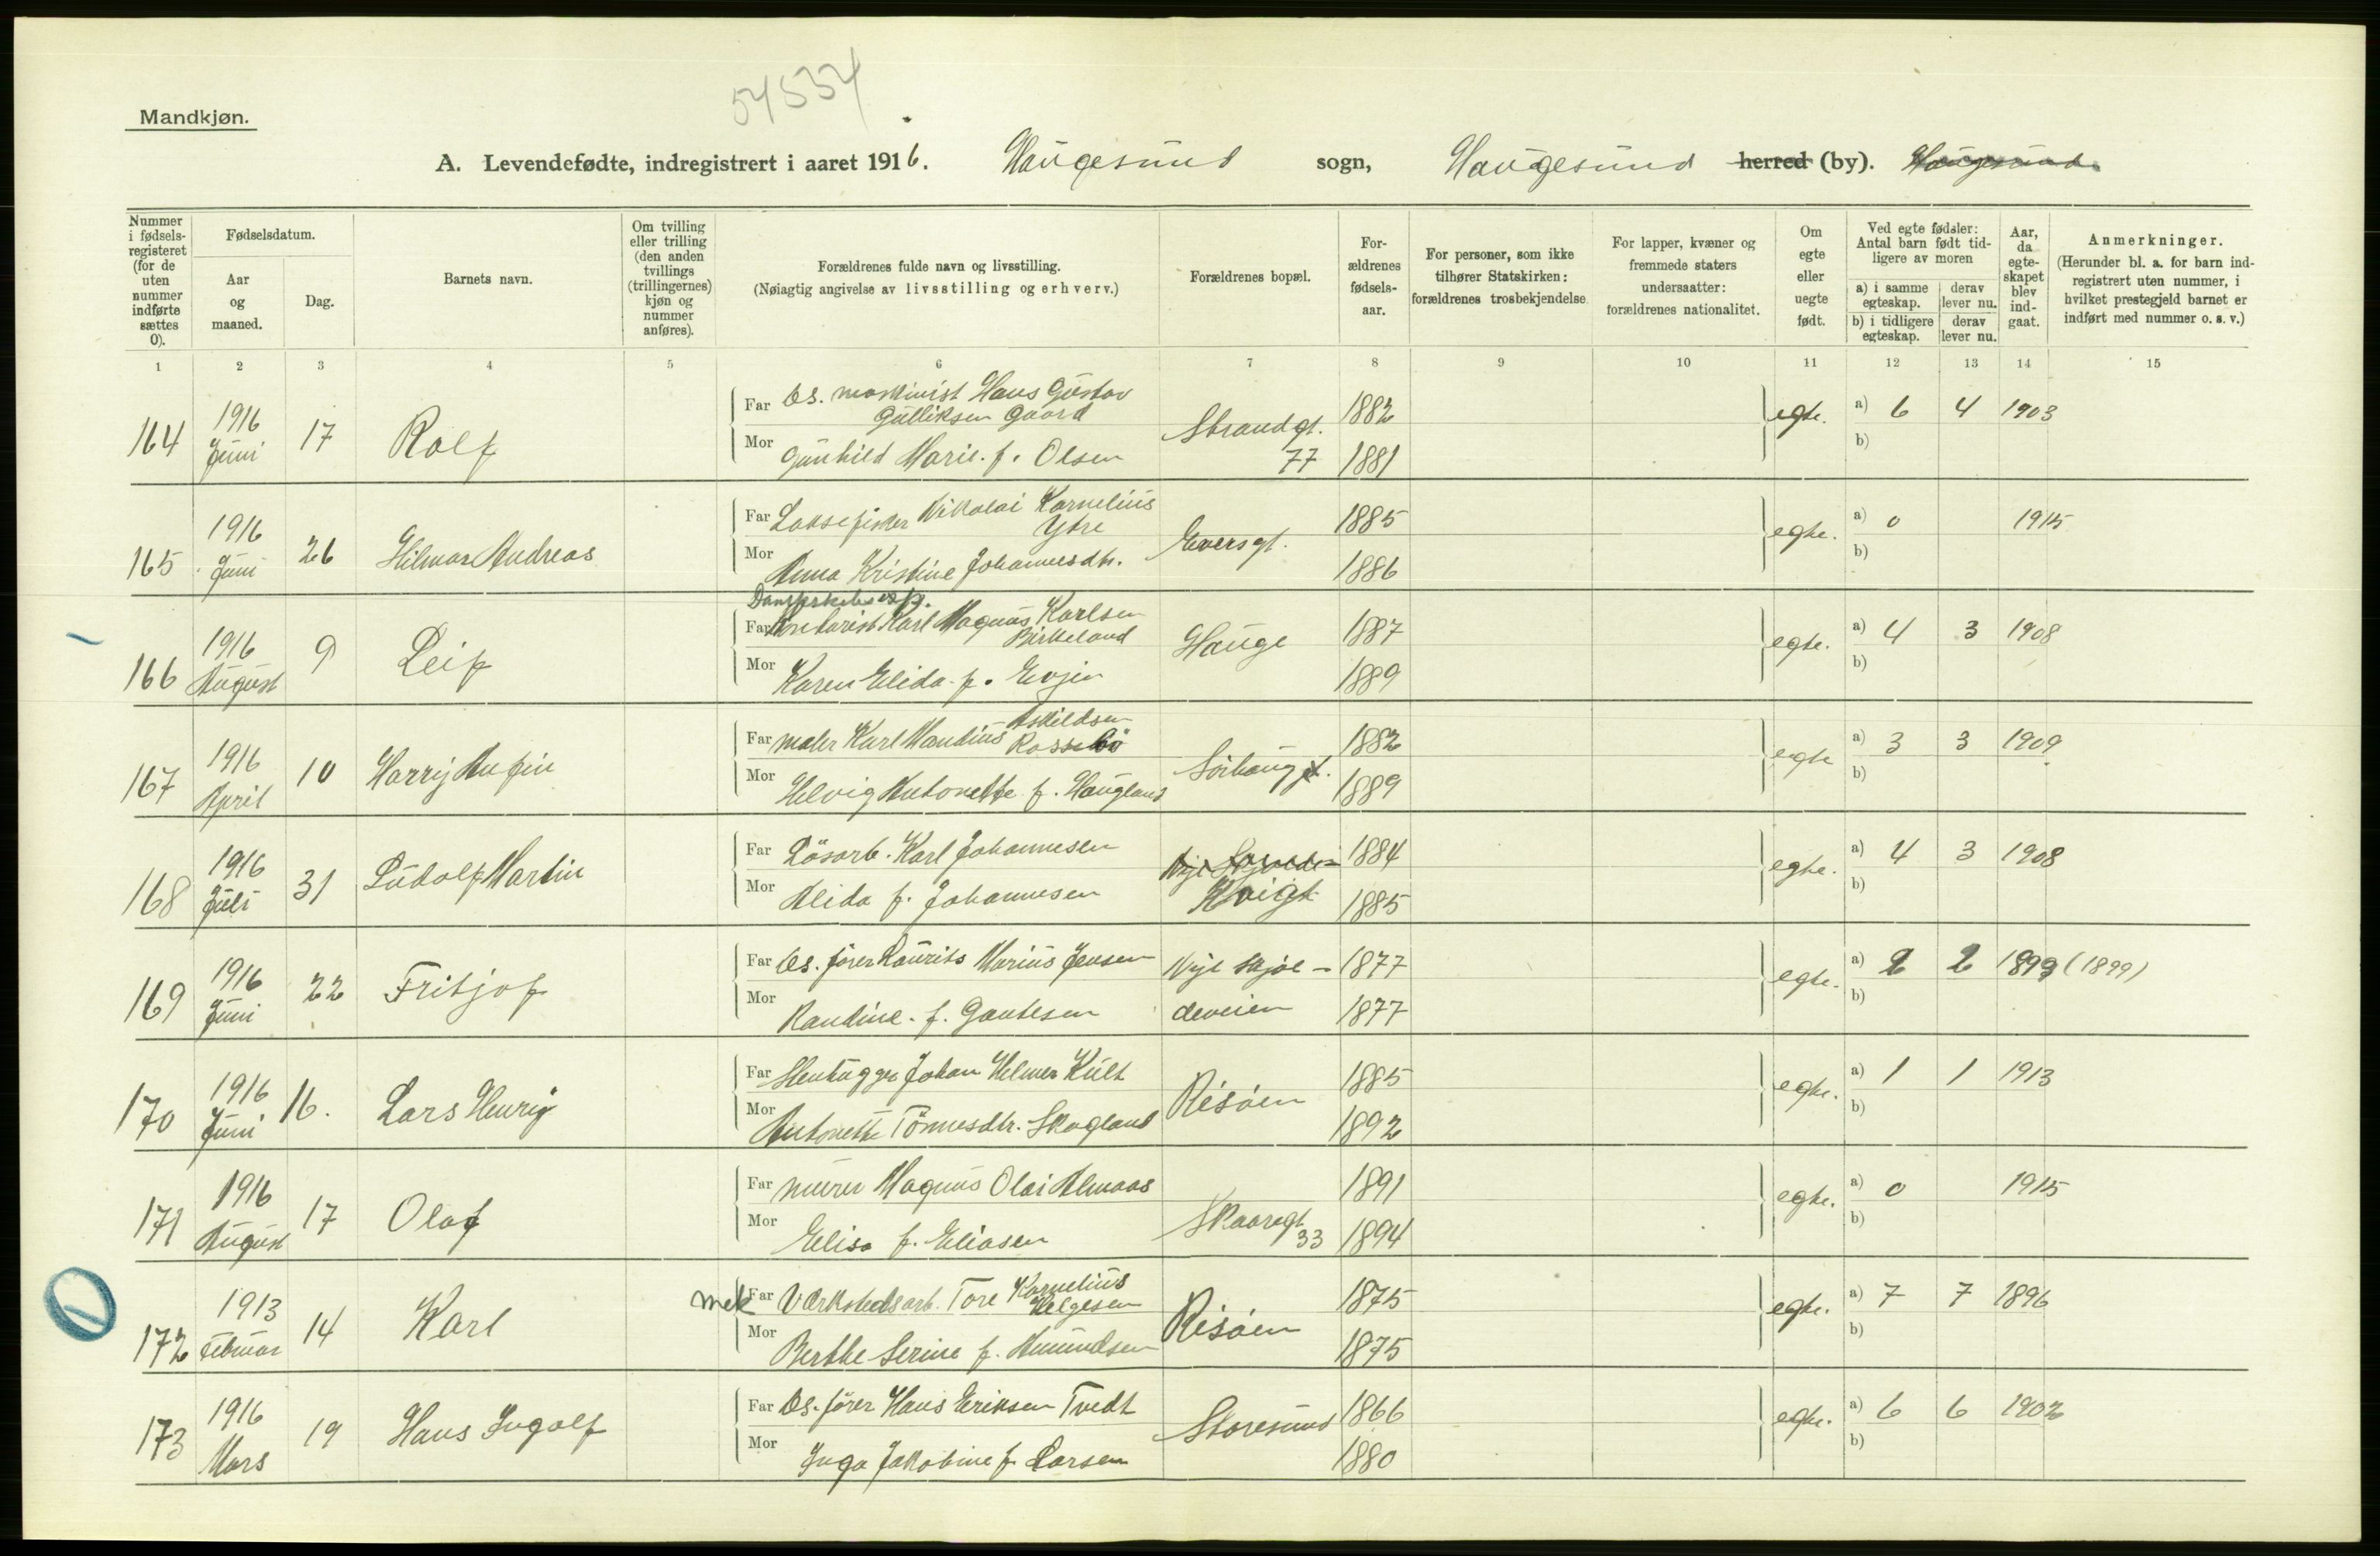 54534
Mandkjøn.
A. Levendefødte, indregistrert i aaret 1916. Haugesund sogn, Haugesund herred (by). Haugesund
Nummer i fødsels-registeret (for de uten nummer indførte sættes 0).
Fødselsdatum.
Aar og maaned.
Dag.
Barnets navn.
Om tvilling eller trilling (den anden tvillings (trillingernes) kjøn og nummer anføres).
Forældrenes fulde navn og livsstilling.
(Nøiagtig angivelse av livsstilling og erhverv.)
Forældrenes bopæl.
For-ældrenes fødsels-aar.
For personer, som ikke tilhører Statskirken: forældrenes trosbekjendelse
For lapper, kvæner og fremmede staters undersaatter: forældrenes nationalitet.
Om egte eller uegte født.
Ved egte fødsler: Antal barn født tid-ligere av moren
a) i samme egteskap.
derav lever nu.
b) i tidligere egteskap.
derav lever nu.
Aar, da egte-skapet blev ind-gaat.
Anmerkninger.
(Herunder bl. a. for barn ind-registrert uten nummer, i hvilket prestegjeld barnet er indført med nummer o. s. v.)
1 2 3 4 5 6 7 8 9 10 11 12 13 14 15
164 1916 Juni 17 Rolf
Far Ds. maskinist Hans Gustav Gulliksen Gaard 1882
Mor Gunhild Marie f. Olsen 1881
Strandgt. 77
egte. a) 6 4 1903
b)
165 1916 Juni 26 Hilmar Andreas
Far Laksefisker Nikolai Kornelius Ytre 1885
Mor Anna Kristine Johannesdtr. 1886
Eversgt.
egte. a) 0 1915
b)
166 1916 August 9 Leif
Far Karl Magnus Karlsen Birkeland 1887
Mor Karen Elida f. Evjen 1889
Hauge
egte. a) 4 3 1908
b)
167 1916 April 10 Harry Anfin
Far maler Karl Mandius Askildsen Rossebö 1882
Mor Helvig Antonette f. Haugland 1889
Sörhauggt.
egte a) 3 3 1909
b)
168 1916 Juli 31 Ludolf Martin
Far Lösarb. Karl Johannesen 1884
Mor Alida f. Johannesen 1885
Nye Skjolde-
egte. a) 4 3 1908
b)
169 1916 Juni 22 Fritjof
Far Ds. förer Laurits Marius Jensen 1877
Mor Randine f. Gautesen 1877
Nye Skjol-deveien
egte. a) 2 2 1899 (1899)
b)
170 1916 Juni 16. Lars Henrij
Far Stenhugger Johan Helmer Kült 1885
Mor Antonette Tönnesdtr. Skogland 1892
Risöen
egte. a) 1 1 1913
b)
171 1916 August 17 Olaf
Far murer Magnus Olai Almaas 1891
Mor Elisa f. Eliasen 1894
Skaaregt 33
egte. a) 0 1915
b)
172 1913 Februar 14 Karl
mek Far Værkstedsarb. Tore Kornelius Helgesen 1875
Mor Berthe Serine f. Amundsen 1875
Risöen
egte. a) 7 7 1896
b)
173 1916 Mars 19 Hans Ingolf
Far Ds. förer Hans Eriksen Tvedt 1866
Mor Inga Jakobine f. Larsen 1880
Storesund
egte. a) 6 6 1902
b)